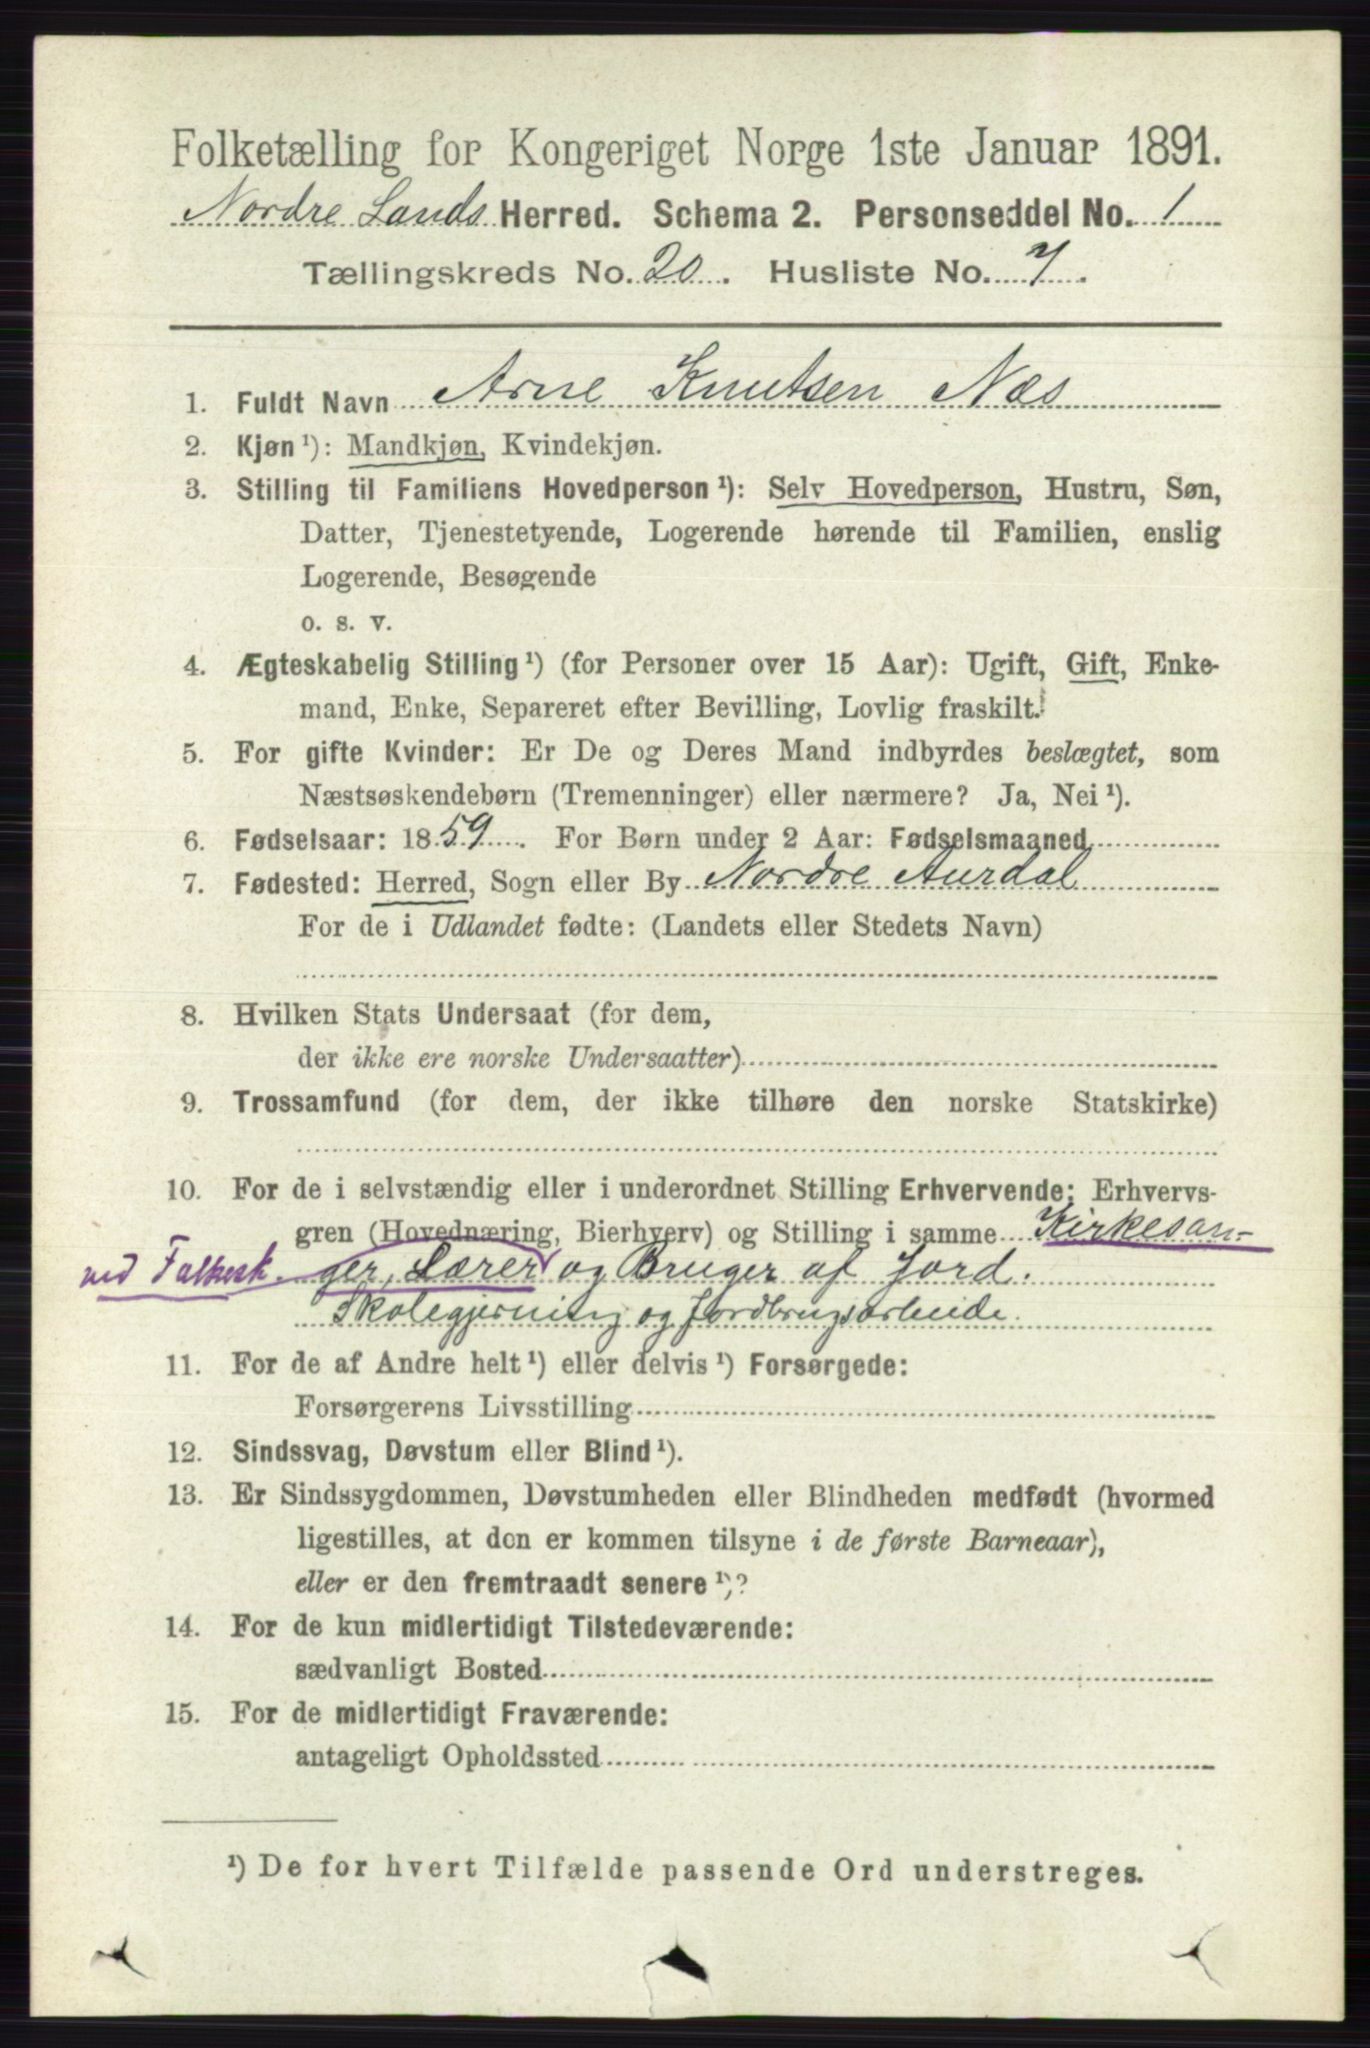 Folketælling for Kongeriget Norge 1ste Januar 1891.
Nordre Lands Herred. Schema 2. Personseddel No. 1
Tællingskreds No. 20. Husliste No. 7.
1. Fuldt Navn Arne Knutsen Næs
2. Kjøn ¹): Mandkjøn, Kvindekjøn.
3. Stilling til Familiens Hovedperson ¹): Selv Hovedperson, Hustru, Søn,
Datter, Tjenestetyende, Logerende hørende til Familien, enslig
Logerende, Besøgende
o. s. v.
4. Ægteskabelig Stilling ¹) (for Personer over 15 Aar): Ugift, Gift, Enke-
mand, Enke, Separeret efter Bevilling, Lovlig fraskilt.
5. For gifte Kvinder: Er De og Deres Mand indbyrdes beslægtet, som
Næstsøskendebørn (Tremenninger) eller nærmere? Ja, Nei ¹).
6. Fødselsaar: 1859. For Børn under 2 Aar: Fødselsmaaned
7. Fødested: Herred, Sogn eller By Nordre Aurdal
For de i Udlandet fødte: (Landets eller Stedets Navn)
8. Hvilken Stats Undersaat (for dem,
der ikke ere norske Undersaatter)
9. Trossamfund (for dem, der ikke tilhøre den norske Statskirke)
10. For de i selvstændig eller i underordnet Stilling Erhvervende: Erhvervs-
gren (Hovednæring, Bierhverv) og Stilling i samme Kirkesan-
ved Folkesk. ger, Lærer og Bruger af Jord.
Skolegjerning og Jordbrugsarbeide.
11. For de af Andre helt ¹) eller delvis ¹) Forsørgede:
Forsørgerens Livsstilling
12. Sindssvag, Døvstum eller Blind ¹).
13. Er Sindssygdommen, Døvstumheden eller Blindheden medfødt (hvormed
ligestilles, at den er kommen tilsyne i de første Barneaar),
eller er den fremtraadt senere ¹)?
14. For de kun midlertidigt Tilstedeværende:
sædvanligt Bosted
15. For de midlertidigt Fraværende:
antageligt Opholdssted
¹) De for hvert Tilfælde passende Ord understreges.